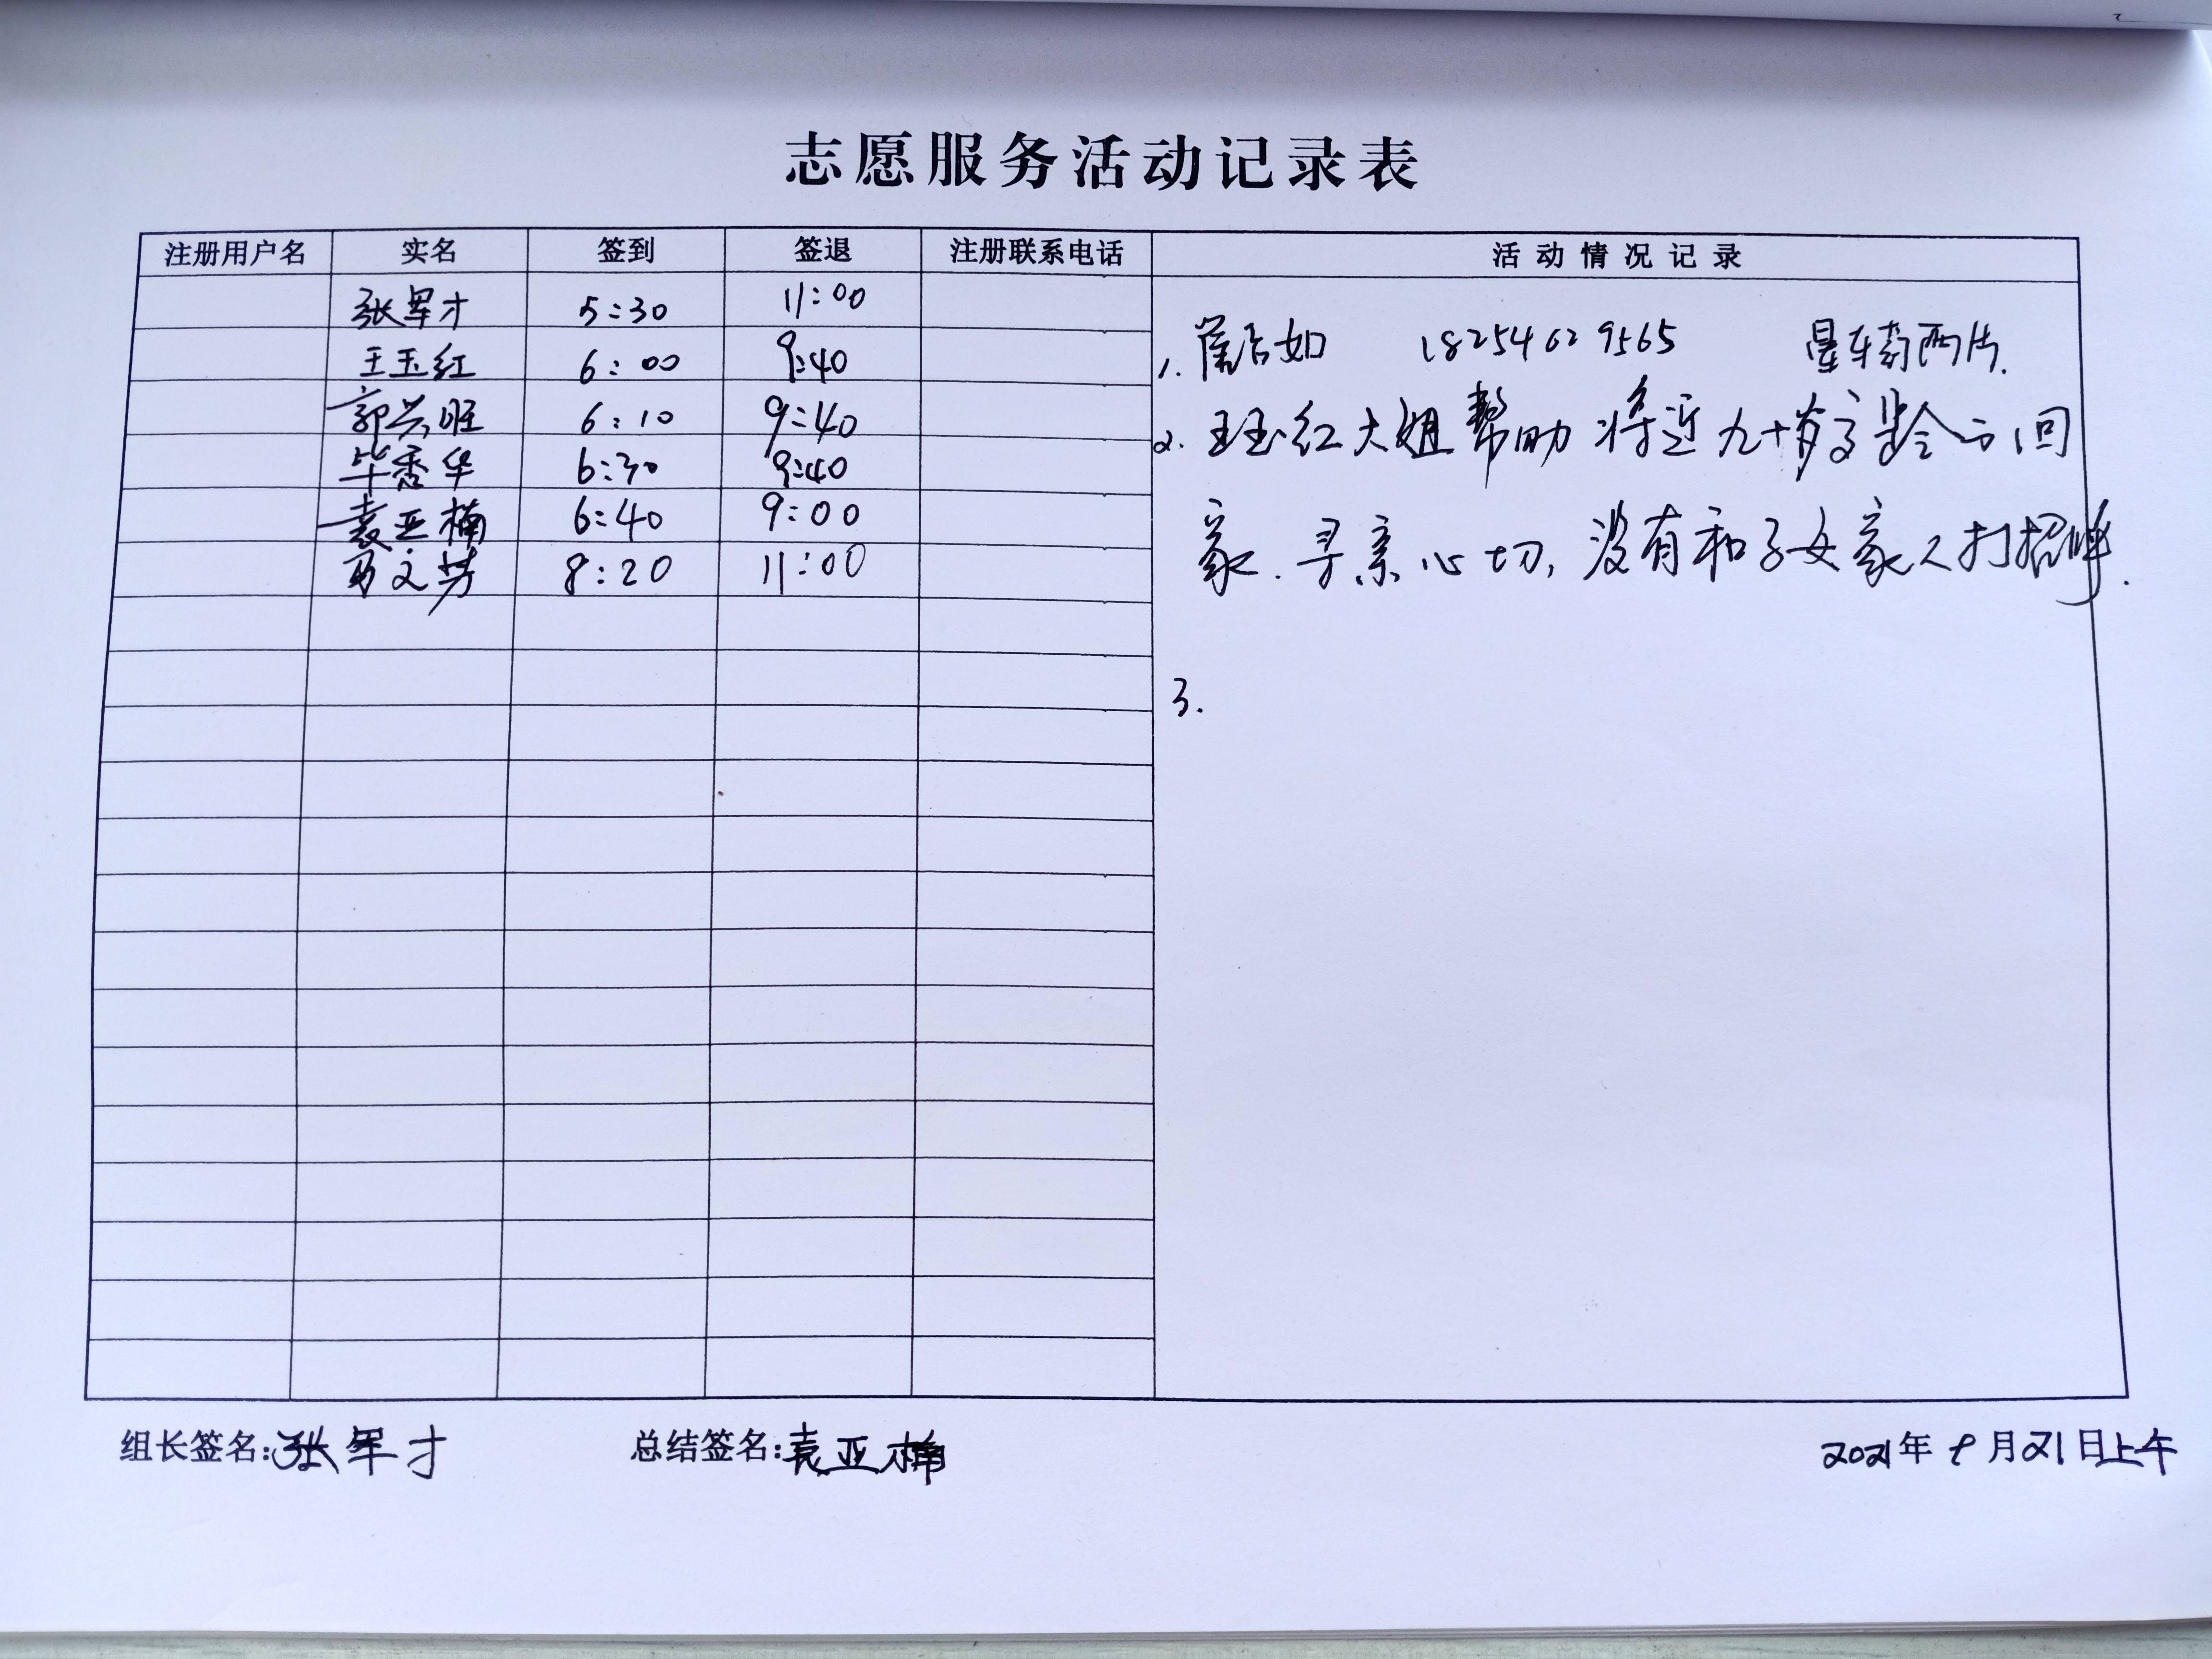 志愿服务活动记录表
注册用户名 实名 签到 签退 注册联系电话 活动情况记录
张军才 5:30 11:00
王玉红 6:00 9:40
郭兴旺 6:10 9:40
毕秀华 6:30 9:40
袁亚楠 6:40 9:00
文芳 8:20 11:00
1. 如 18254629565 晕车药两片.
2. 王玉红大姐帮助将近九十岁高龄 回
家.寻亲心切,没有和子女家人打招呼.
3.
组长签名:张军才 总结签名:袁亚楠 2021年 月21日上午